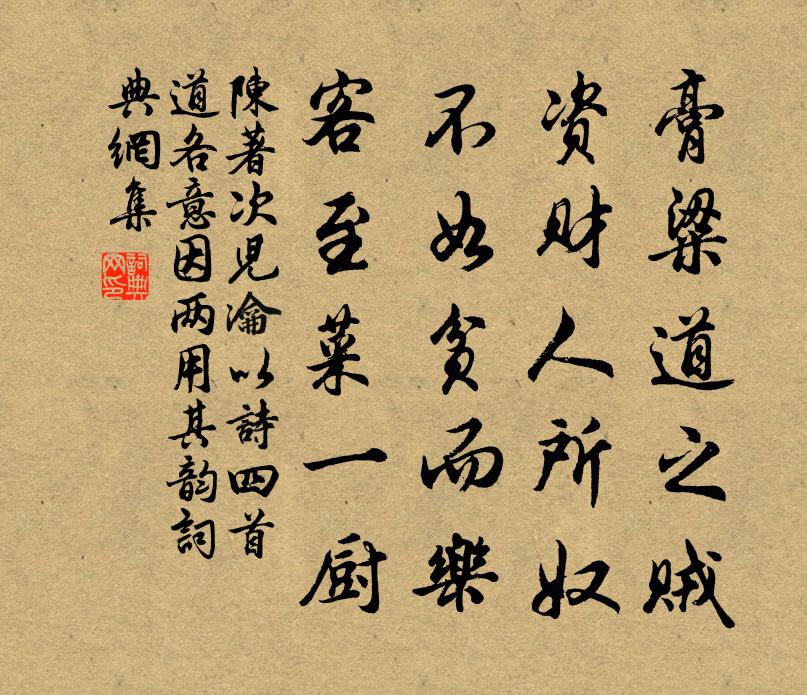 膏粱道之賊
资财人所奴
不如贫而樂
客至菜一厨
陳著次兒瀹以詩四首
道各意因两用其韵詞
典網集
詞典
网印